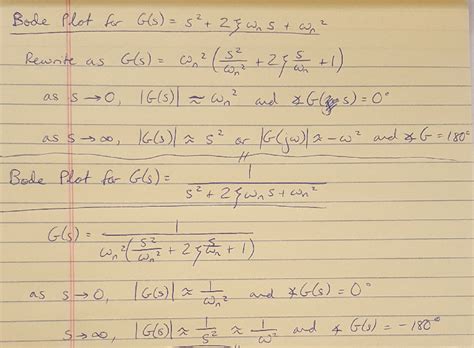 Bode Plot for G(s) = s² + 2ζωₙs + ωₙ²
Rewrite as G(s) = ωₙ² (s²/ωₙ² + 2ζ s/ωₙ + 1)
as s → 0, |G(s)| ≈ ωₙ² and ∡G(s) = 0°
as s → ∞, |G(s)| ≈ s² or |G(jω)| ≈ -ω² and ∡G = 180°
Bode Plot for G(s) = 1 / (s² + 2ζωₙs + ωₙ²)
G(s) = 1 / (ωₙ² (s²/ωₙ² + 2ζ s/ωₙ + 1))
as s → 0, |G(s)| ≈ 1/ωₙ² and ∡G(s) = 0°
s → ∞, |G(s)| ≈ 1/s² ≈ 1/ω² and ∡G(s) = -180°